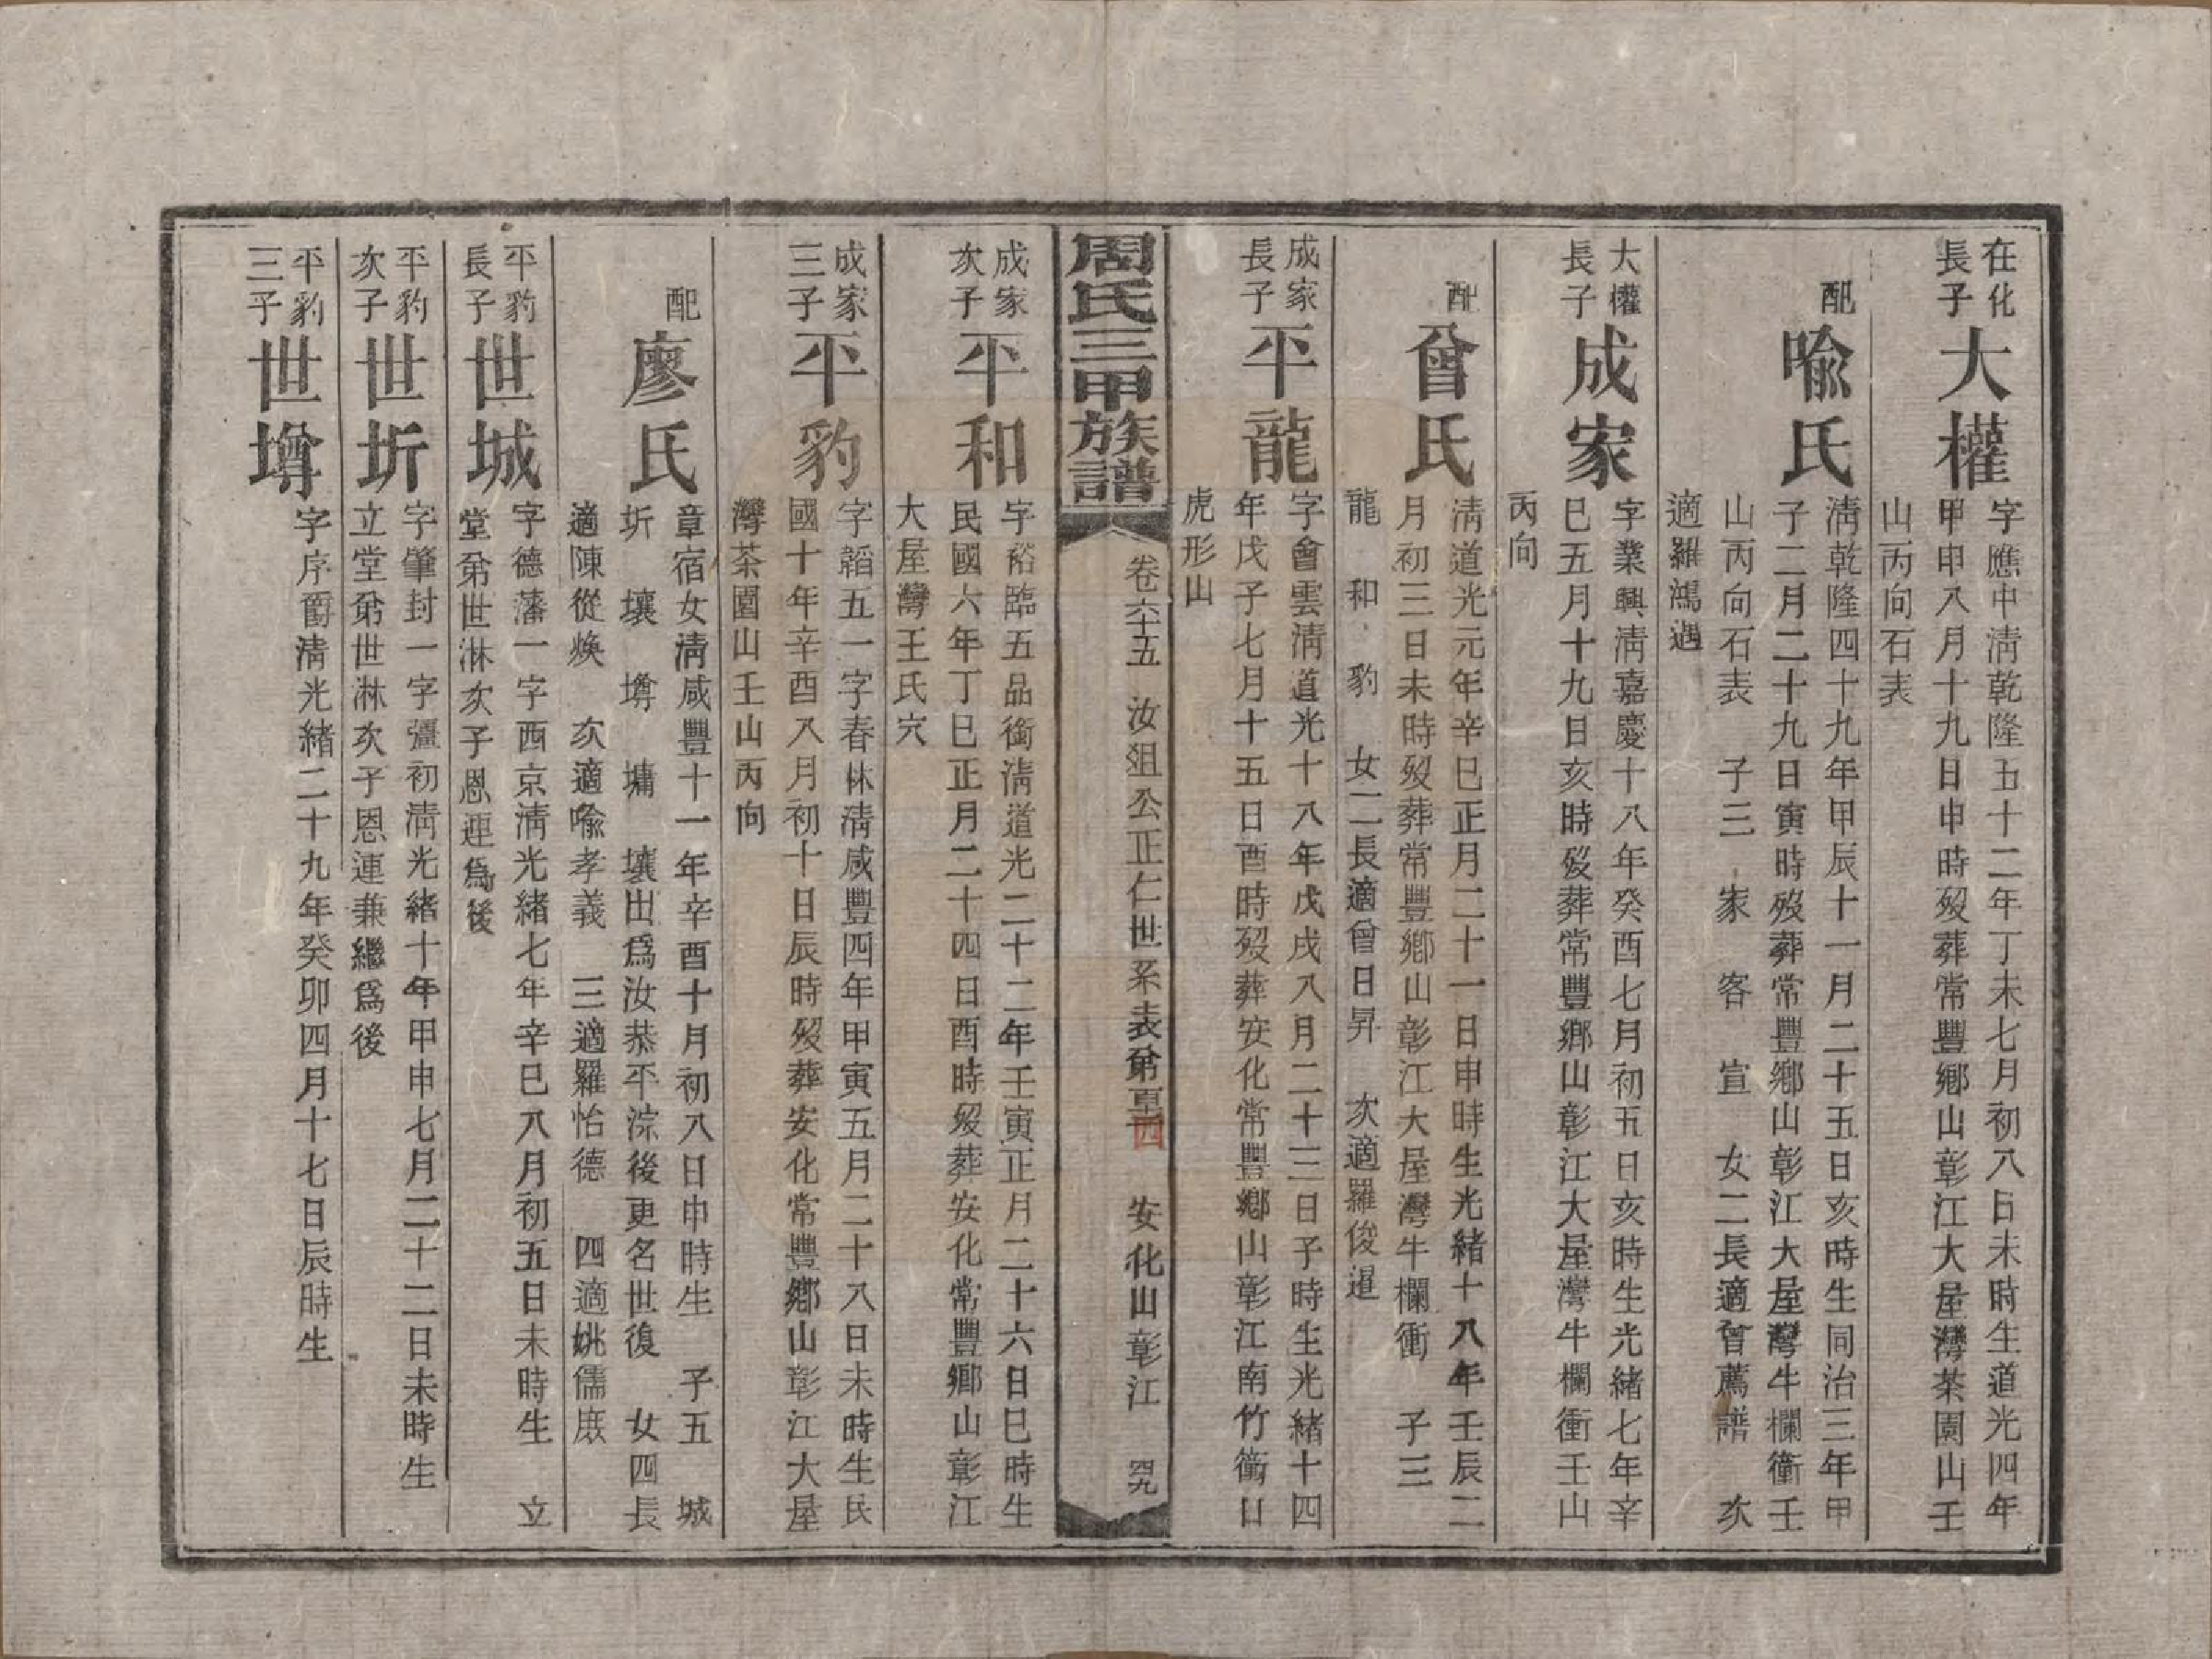 在化
長子
大權
字應中淸乾隆五十二年丁未七月初八日未時生道光四年
甲申八月十九日申時歿葬常豐鄉山彰江大屋灣茶園山壬
山丙向石表
配
喩氏
淸乾隆四十九年甲辰十一月二十五日亥時生同治三年甲
子二月二十九日寅時歿葬常豐鄉山彰江大屋灣牛欄衝壬
山丙向石表 子三 家 客 宣 女二長適曾薦譜 次
適羅鴻遇
大權
長子
成家
字業興淸嘉慶十八年癸酉七月初五日亥時生光緒七年辛
巳五月十九日亥時歿葬常豐鄉山彰江大屋灣牛欄衝壬山
丙向
配
曾氏
淸道光元年辛巳正月二十一日申時生光緒十八年壬辰二
月初三日未時歿葬常豐鄉山彰江大屋灣牛欄衝 子三
龍 和 豹 女二長適曾日昇 次適羅俊暹
成家
長子
平龍
字會雲淸道光十八年戊戌八月二十三日子時生光緒十四
年戊子七月十五日酉時歿葬安化常豐鄉山彰江南竹衝口
虎形山
周氏三甲族譜
卷六十五 汝爼公正仁世系表第 四 安化山彰江 四九
成家
次子
平和
字裕臨五品銜淸道光二十二年壬寅正月二十六日巳時生
民國六年丁巳正月二十四日酉時歿葬安化常豐鄉山彰江
大屋灣王氏穴
成家
三子
平豹
字韜五一字春林淸咸豐四年甲寅五月二十八日未時生民
國十年辛酉八月初十日辰時歿葬安化常豐鄉山彰江大屋
灣茶園山壬山丙向
配
廖氏
章宿女淸咸豐十一年辛酉十月初八日申時生 子五 城
圻 壤 墫 墉 壤出爲汝恭平淙後更名世復 女四長
適陳從煥 次適喩孝義 三適羅怡德 四適姚儒
平豹
長子
世城
字德藩一字西京淸光緒七年辛巳八月初五日未時生 立
堂弟世淋次子恩連爲後
平豹
次子
世圻
字肇封一字彊初淸光緒十年甲申七月二十二日未時生
立堂弟世淋次子恩連兼繼爲後
平豹
三子
世墫
字序爵淸光緒二十九年癸卯四月十七日辰時生